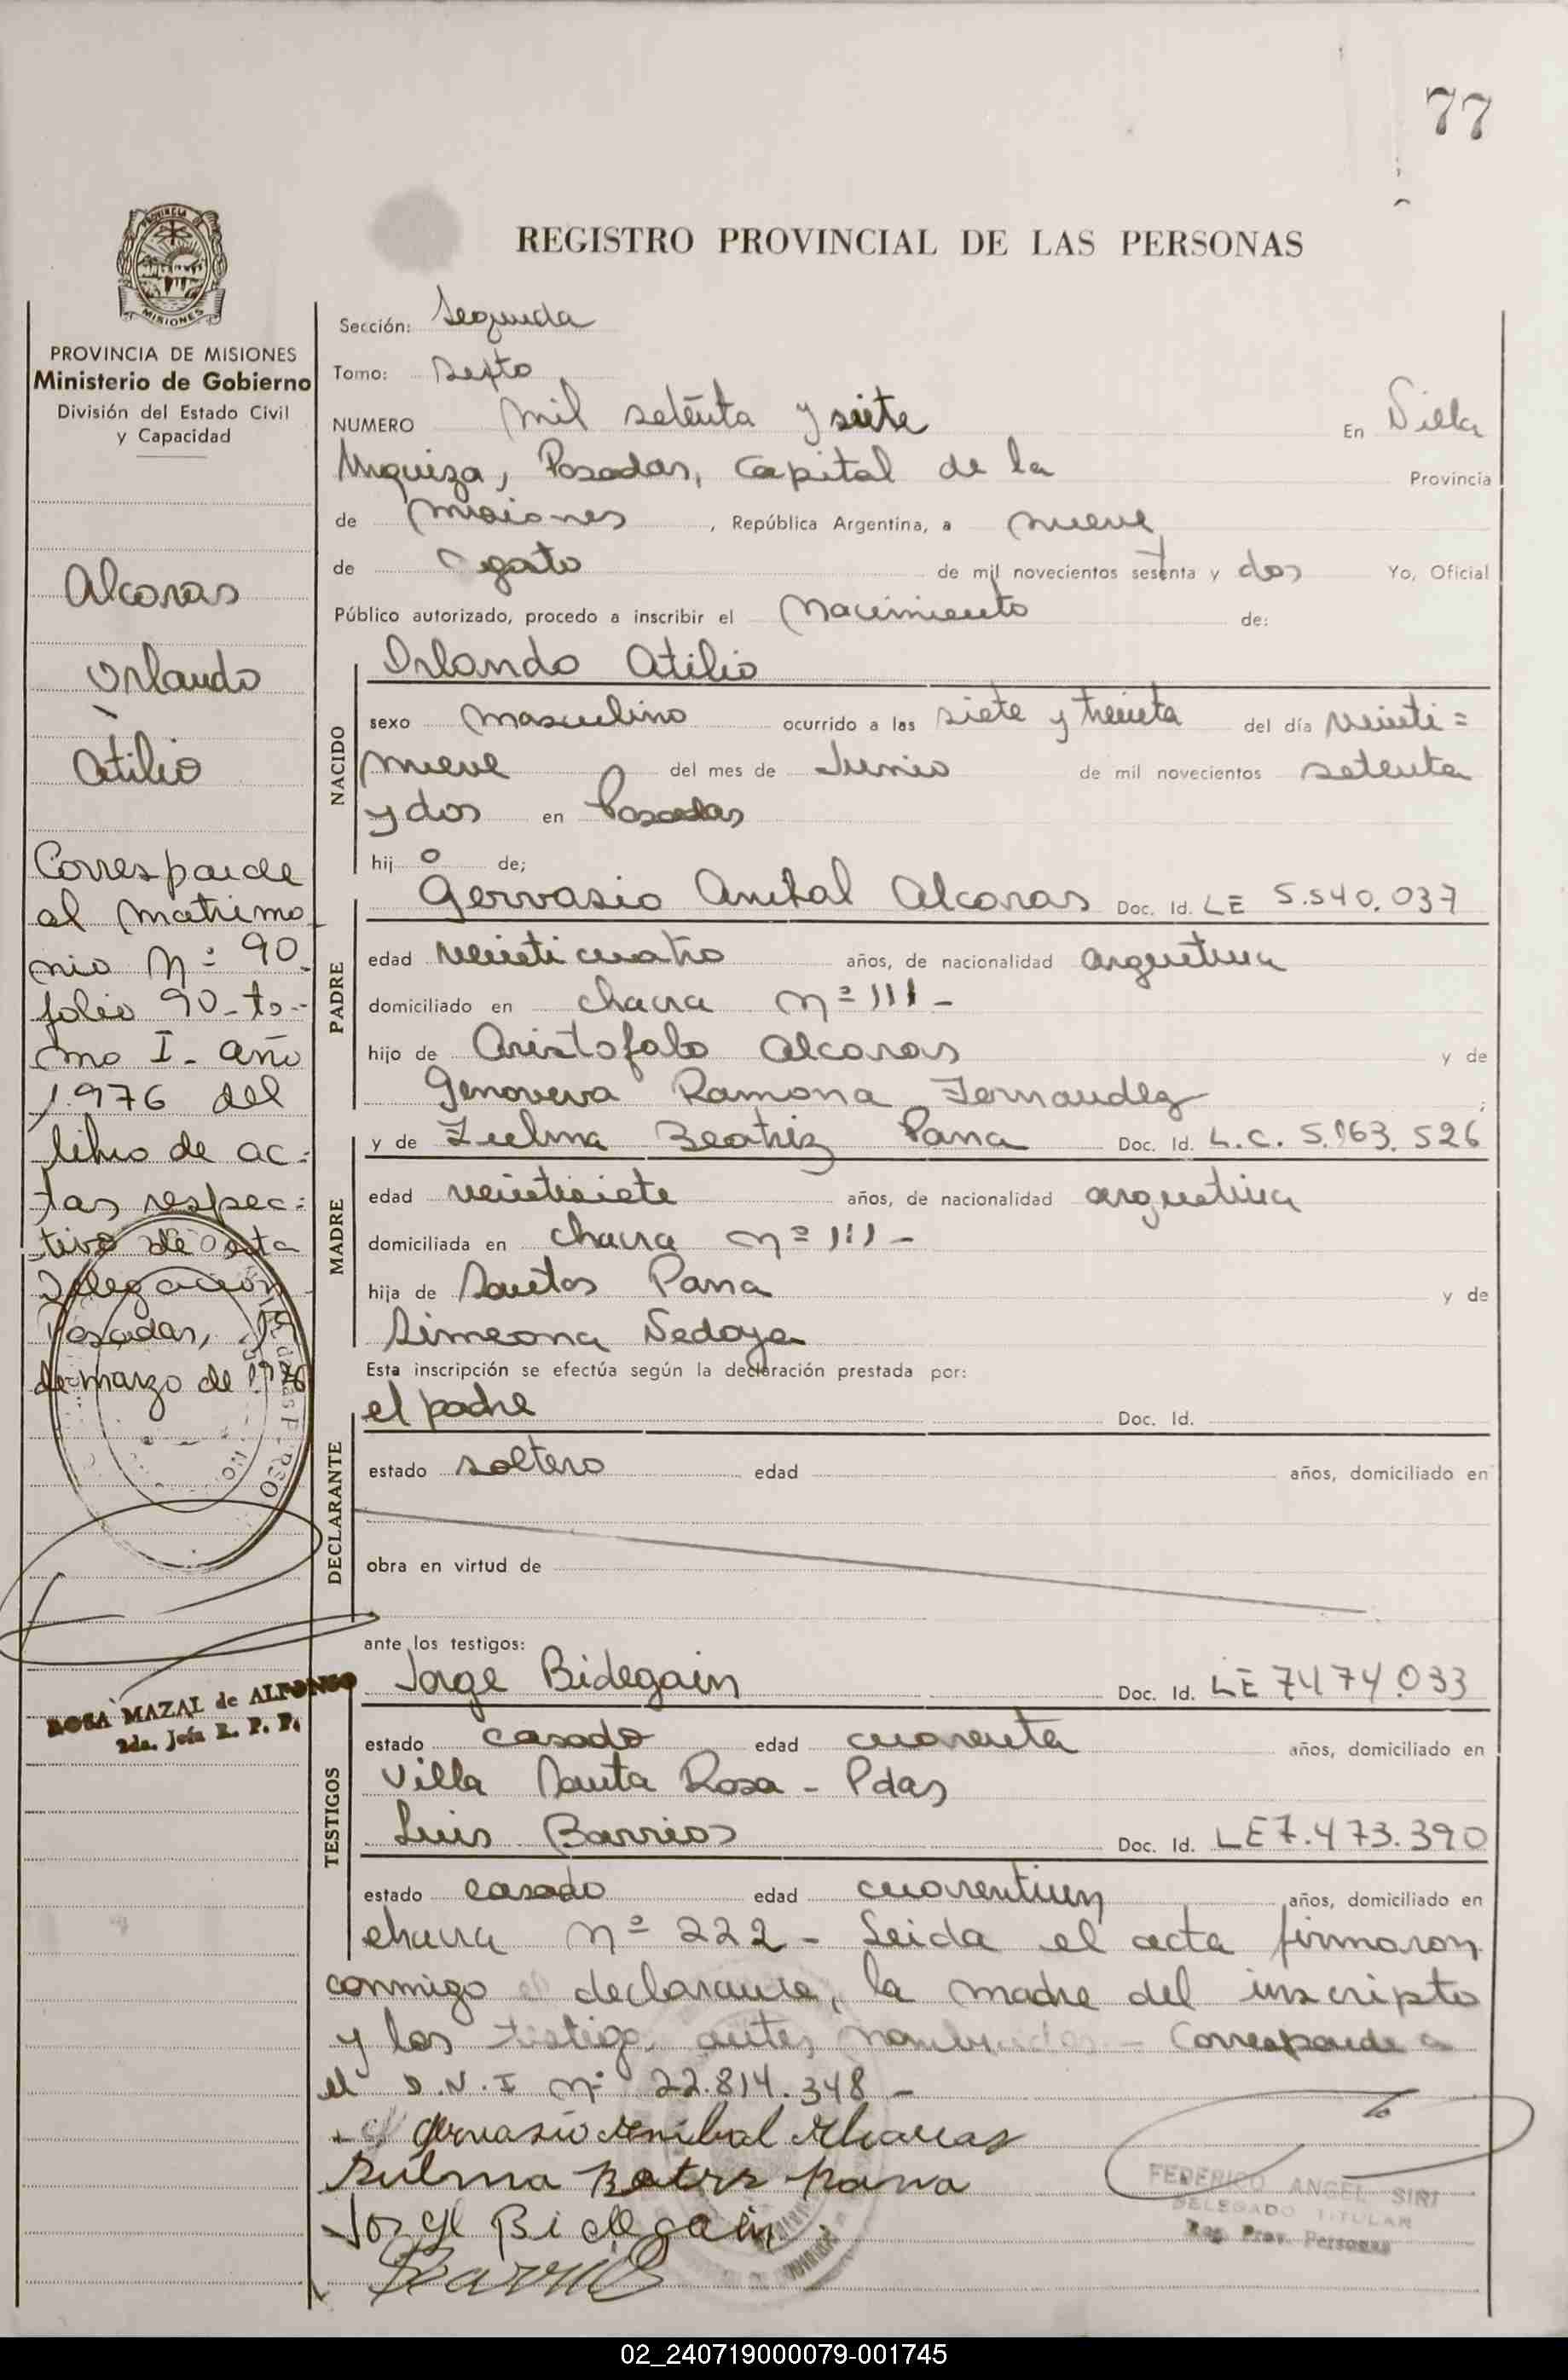 77
PROVINCIA DE
MISIONES
REGISTRO PROVINCIAL DE LAS PERSONAS
PROVINCIA DE MISIONES
Ministerio de Gobierno
División del Estado Civil
y Capacidad
Alcaras
Orlando
Atilio
Corresponde
al matrimo
nio Nº 90
folio 90 - to-
mo I - año
1976 del
libro de ac-
tas respec-
tivo de esta
Delegación
Posadas, 19
de marzo de 1976
ROSA MAZAL de ALFONSO
2da. Jefa R. P. P.
Sección: Segunda
Tomo: Sexto
NUMERO Mil setenta y siete En Villa
Urquiza, Posadas, Capital de la Provincia
de Misiones, República Argentina, a nueve
de Agosto de mil novecientos setenta y dos Yo, Oficial
Público autorizado, procedo a inscribir el Nacimiento de:
NACIDO
Orlando Atilio
sexo masculino ocurrido a las siete y treinta del día veinti=
nueve del mes de Junio de mil novecientos setenta
y dos en Posadas
hijo de;
PADRE
Gervasio Anibal Alcaras Doc. Id. LE 5.540.037
edad veinticuatro años, de nacionalidad argentina
domiciliado en chacra nº 111 -
hijo de Aristofalo Alcaras y de
Genoveva Ramona Fernandez ;
MADRE
y de Zulma Beatriz Parra Doc. Id. L.C. 5.163.526
edad veintisiete años, de nacionalidad argentina
domiciliada en chacra nº 111 -
hija de Santos Parra y de
Simeona Sedoya
Esta inscripción se efectúa según la declaración prestada por:
DECLARANTE
el padre Doc. Id.
estado soltero edad años, domiciliado en
obra en virtud de
ante los testigos:
TESTIGOS
Jorge Bidegain Doc. Id. LE 7474.033
estado casado edad cuarenta años, domiciliado en
Villa Santa Rosa - Pdas
Luis Barrios Doc. Id. LE 7.473.390
estado casado edad cuarentiun años, domiciliado en
chacra nº 222 - Leida el acta firmaron
conmigo el declarante, la madre del inscripto
y los testigos antes nombrados - Corresponde a
el D.N.I nº 22.814.348 -
Gervasio Anibal Alcaras
Sulma Batris Parra
Jorge Bidegain
Barrios
FEDERICO ANGEL SIRI
DELEGADO TITULAR
Reg. Prov. Personas
02_240719000079-001745